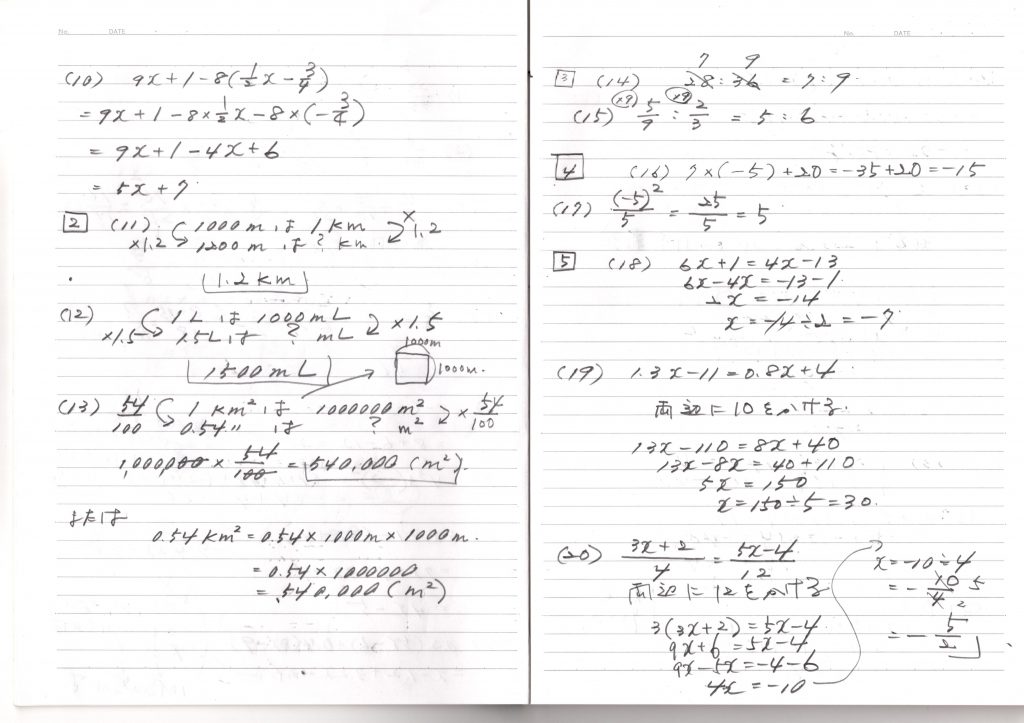 No. DATE
(10) 9x+1-8(1/2x-3/4)
=9x+1-8×1/2x-8×(-3/4)
=9x+1-4x+6
=5x+7
2 (11) 1000m は 1km ×1.2
×1.2 1200m は ? km
1.2km
(12) 1L は 1000mL ×1.5
×1.5 1.5L は ? mL
1000m
1500mL 1000m.
(13) 54/100 1km² は 1000000m² ×54/100
0.54〃 は ? m²
1,000,000×54/100=540,000(m²)
または
0.54km²=0.54×1000m×1000m.
=0.54×1000000
=540,000(m²)
No. DATE
7 9
3 (14) 28:36=7:9
(15) ×9 5/9:×9 2/3=5:6
4 (16) 7×(-5)+20=-35+20=-15
(17) (-5)²/5=25/5=5
5 (18) 6x+1=4x-13
6x-4x=-13-1
2x=-14
x=-14÷2=-7
(19) 1.3x-11=0.8x+4
両辺に10をかける.
13x-110=8x+40
13x-8x=40+110
5x=150
x=150÷5=30
(20) 3x+2/4=5x-4/12
両辺に12をかける
3(3x+2)=5x-4
9x+6=5x-4
9x-5x=-4-6
4x=-10
x=-10÷4
=-10/4 5 2
=-5/2